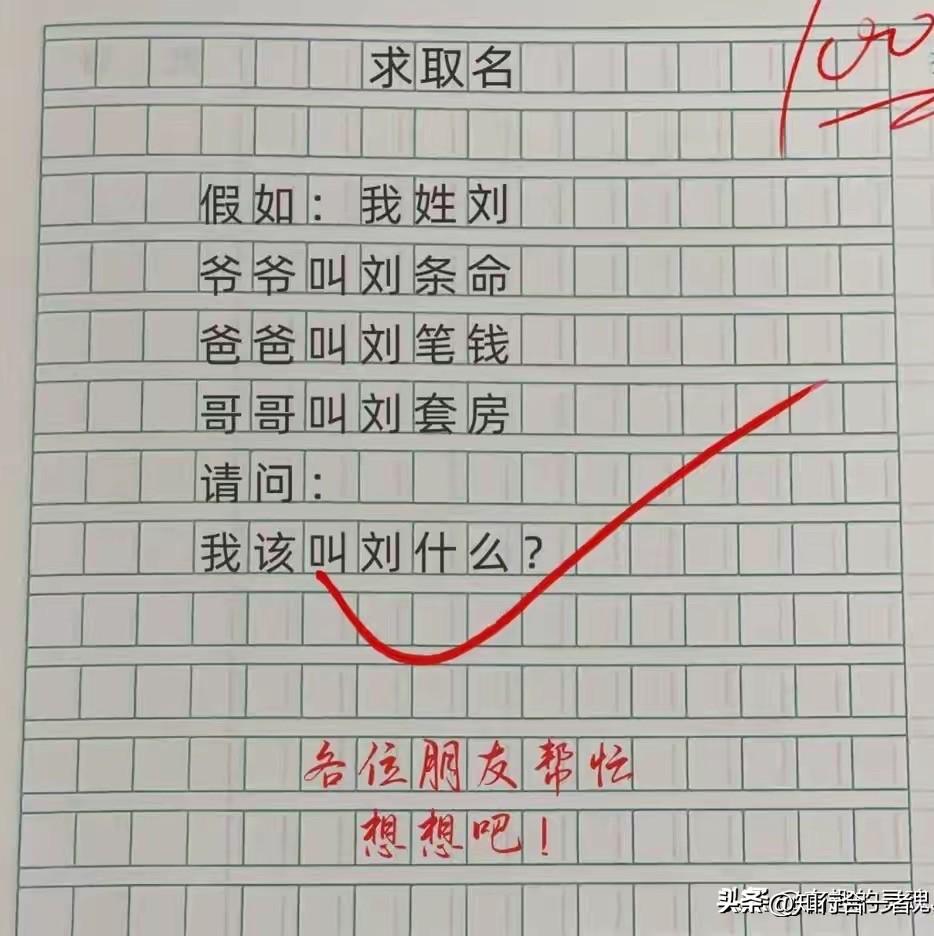 求取名
100
假如：我姓刘
爷爷叫刘条命
爸爸叫刘笔钱
哥哥叫刘套房
请问：
我该叫刘什么？
各位朋友帮忙
想想吧！
头条